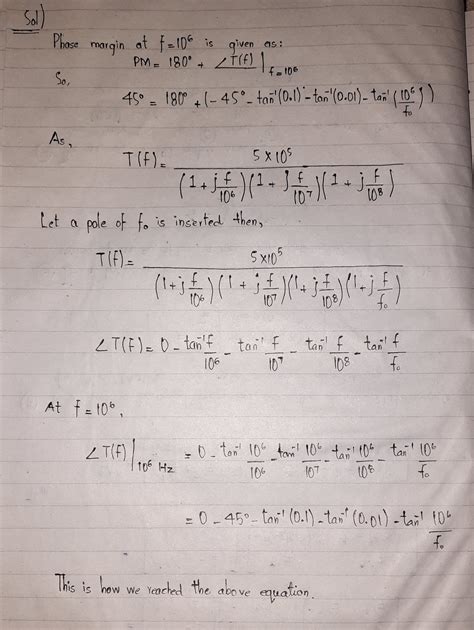 Sol)
Phase margin at f = 10⁶ is given as:
PM = 180° + ∠T(f) |f = 10⁶
So,
45° = 180° + (- 45° - tan⁻¹(0.1) - tan⁻¹(0.01) - tan⁻¹(10⁶/f₀))
As,
T(f) = 5 × 10⁵ / (1 + j f/10⁶)(1 + j f/10⁷)(1 + j f/10⁸)
Let a pole of f₀ is inserted then,
T(f) = 5×10⁵ / (1 + j f/10⁶)(1 + j f/10⁷)(1 + j f/10⁸)(1 + j f/f₀)
∠T(f) = 0 - tan⁻¹ f/10⁶ - tan⁻¹ f/10⁷ - tan⁻¹ f/10⁸ - tan⁻¹ f/f₀
At f = 10⁶,
∠T(f) |10⁶ Hz = 0 - tan⁻¹ 10⁶/10⁶ - tan⁻¹ 10⁶/10⁷ - tan⁻¹ 10⁶/10⁸ - tan⁻¹ 10⁶/f₀
= 0 - 45° - tan⁻¹(0.1) - tan⁻¹(0.01) - tan⁻¹ 10⁶/f₀
This is how we reached the above equation.